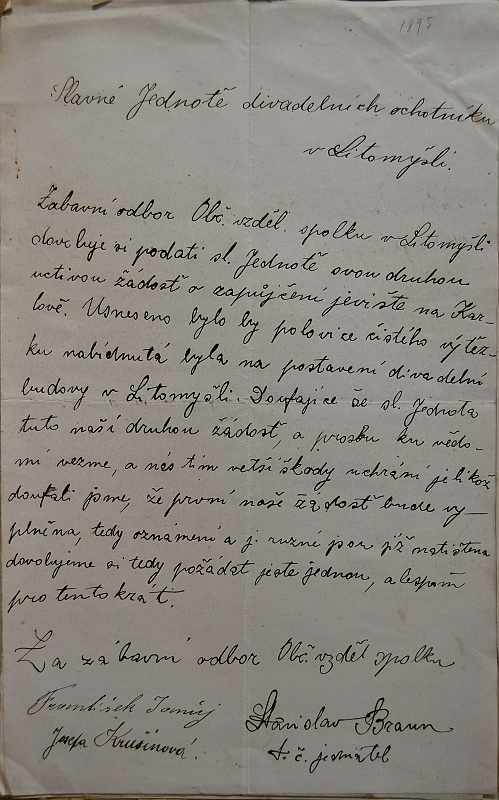 1895
Slavné Jednotě divadelních ochotníku
v Litomyšli.
Zabavní odbor Obč. vzděl. spolku v Litomyšli
dovoluje si podati sl. Jednotě svou druhou
uctivou žádosť o zapůjčení jeviště na Kar-
lově. Usneseno bylo by polovice čistého výtěž-
ku nabídnutá byla na postavení divadelní
budovy v Litomyšli. Doufajíce že sl. Jednota
tuto naší druhou žádosť, a prosbu ku vědo-
mí vezme, a nás tím větší škody uchrání jelikož
doufali jsme, že první naše žádosť bude vy-
plněna, tedy oznámení a j. ruzné jsou již natištěna
dovolujeme si tedy požádat jeste jednou, alespoň
pro tentokráť.
Za zábavní odbor Obč. vzděl spolku
František
Josefa Krušinová.
Stanislav Braun
t. č. jednatel